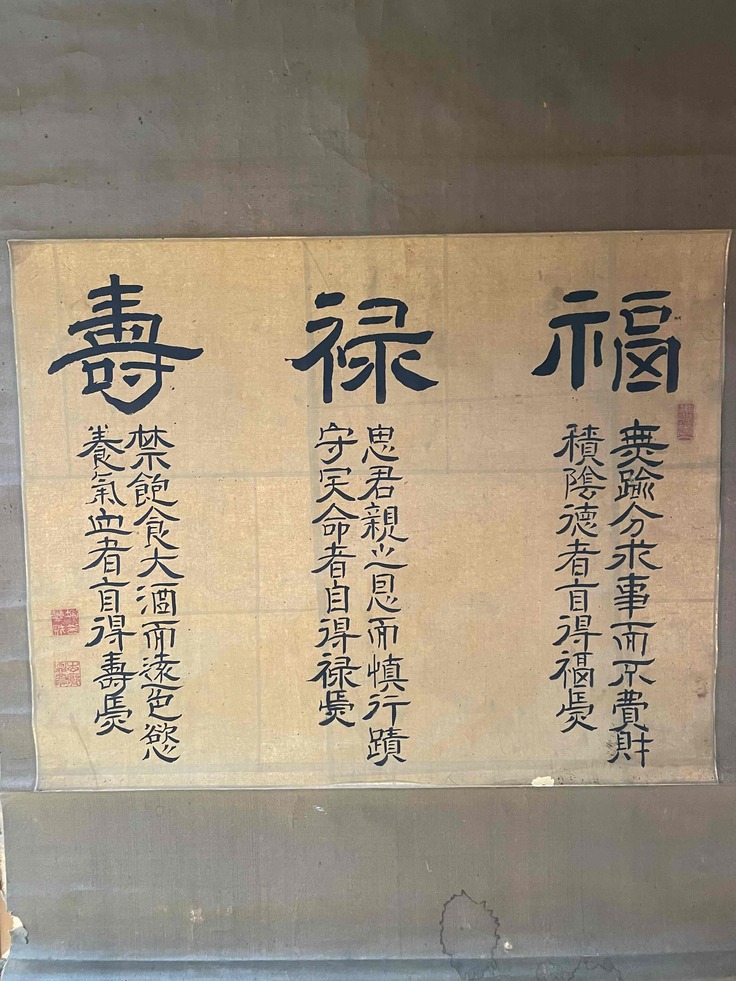 福
無踰分求事而不費財
積陰德者自得福焉
禄
思君親之恩而慎行蹟
守天命者自得禄焉
壽
禁飽食大酒而遠色慾
養氣血者自得壽焉